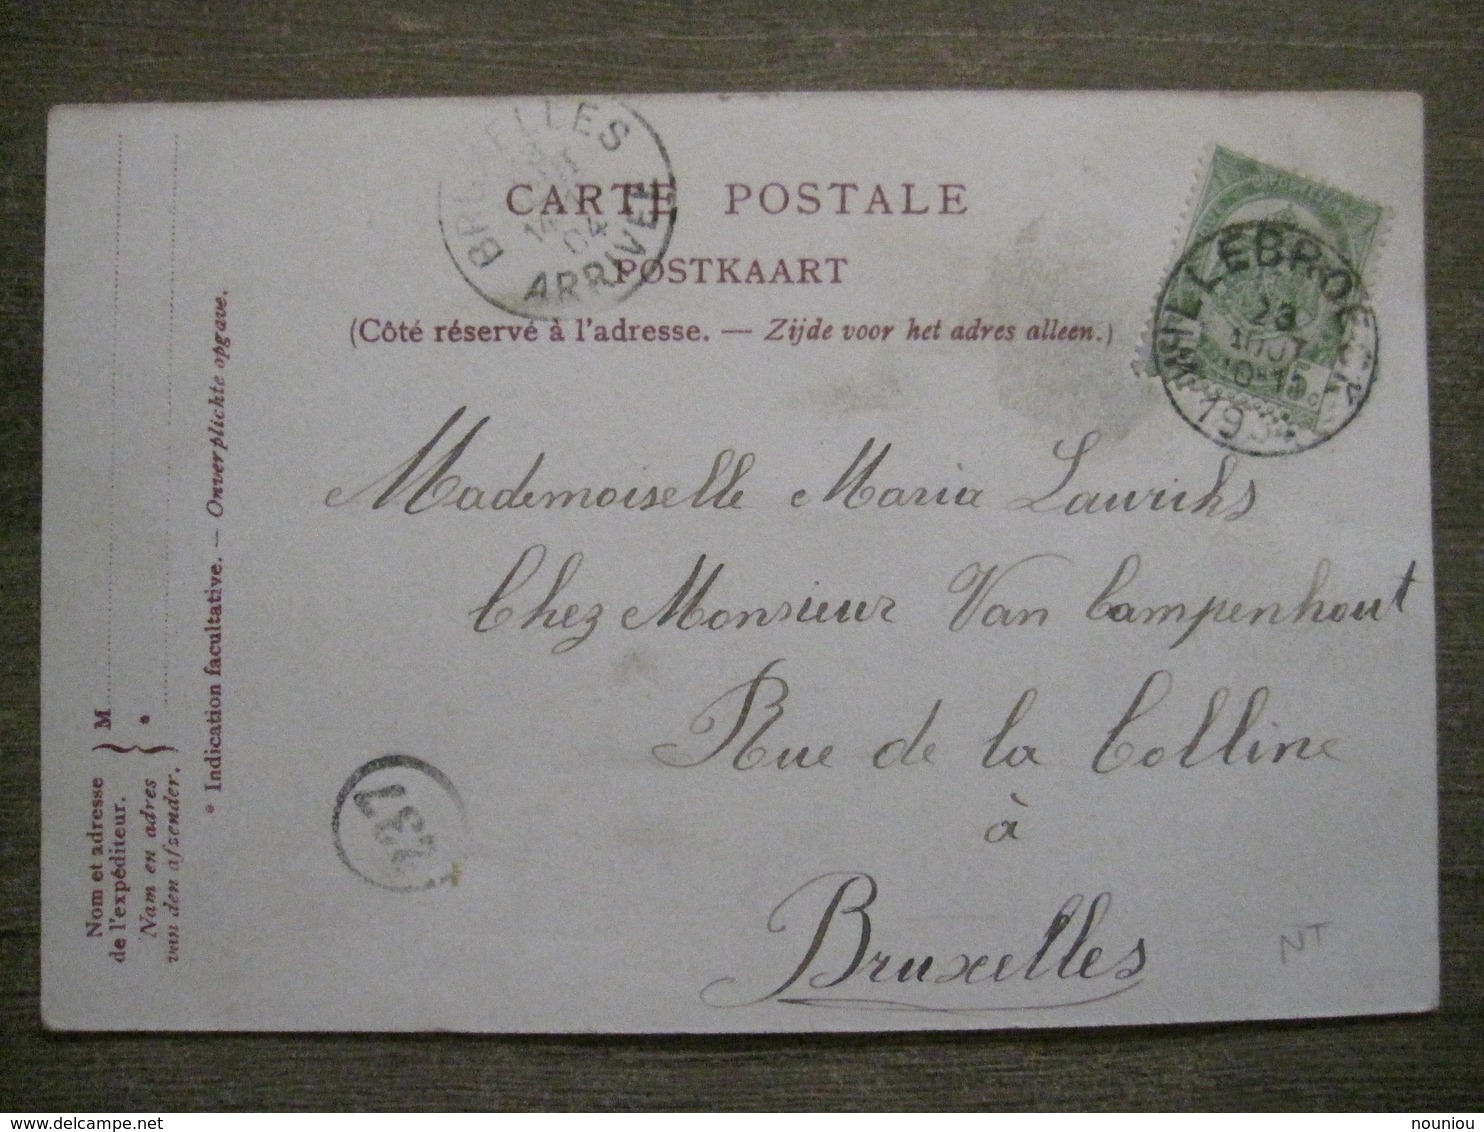 CARTE POSTALE
POSTKAART
(Côté réservé à l'adresse. — Zijde voor het adres alleen.)
BRUXELLES
14
04
ARRIVEE
WILLEBROECK
23
AOUT
10-15
1904
Mademoiselle Maria Laurihs
Chez Monsieur Van Campenhout
Rue de la Colline
à
Bruxelles
NT
237
Nom et adresse
de l'expéditeur.
Nam en adres
van den afzender.
M
*
* Indication facultative. — Onverplichte opgave.
nouniou